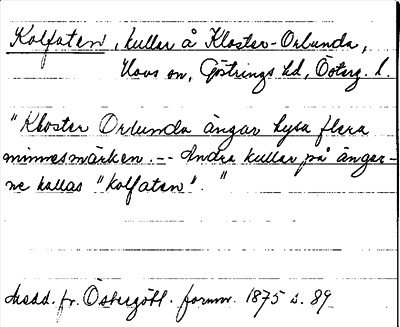 Kolfaten, kullar å Kloster-Orlunda,
Hovs sn, Göstrings hd, Österg. l.
"Kloster Orlunda ängar hysa flera
minnesmärken. -- Andra kullar på ängar-
ne kallas "Kolfaten"."
Medd. fr. Östergötl. fornm. 1875 s. 89